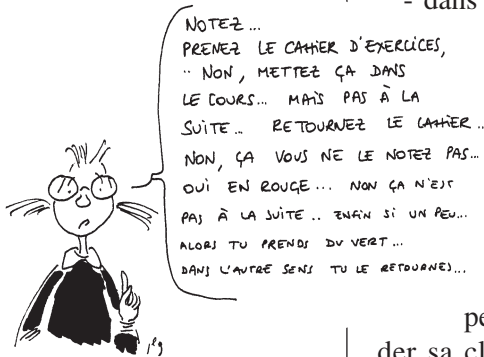 - dans
NOTEZ...
PRENEZ LE CAHIER D'EXERCICES,
.. NON, METTEZ ÇA DANS
LE COURS... MAIS PAS À LA
SUITE... RETOURNEZ LE CAHIER..
NON, ÇA VOUS NE LE NOTEZ PAS...
OUI EN ROUGE... NON ÇA N'EST
PAS À LA SUITE.. ENFIN SI UN PEU...
ALORS TU PRENDS DU VERT...
DANS L'AUTRE SENS TU LE RETOURNES...
pe
der sa cl